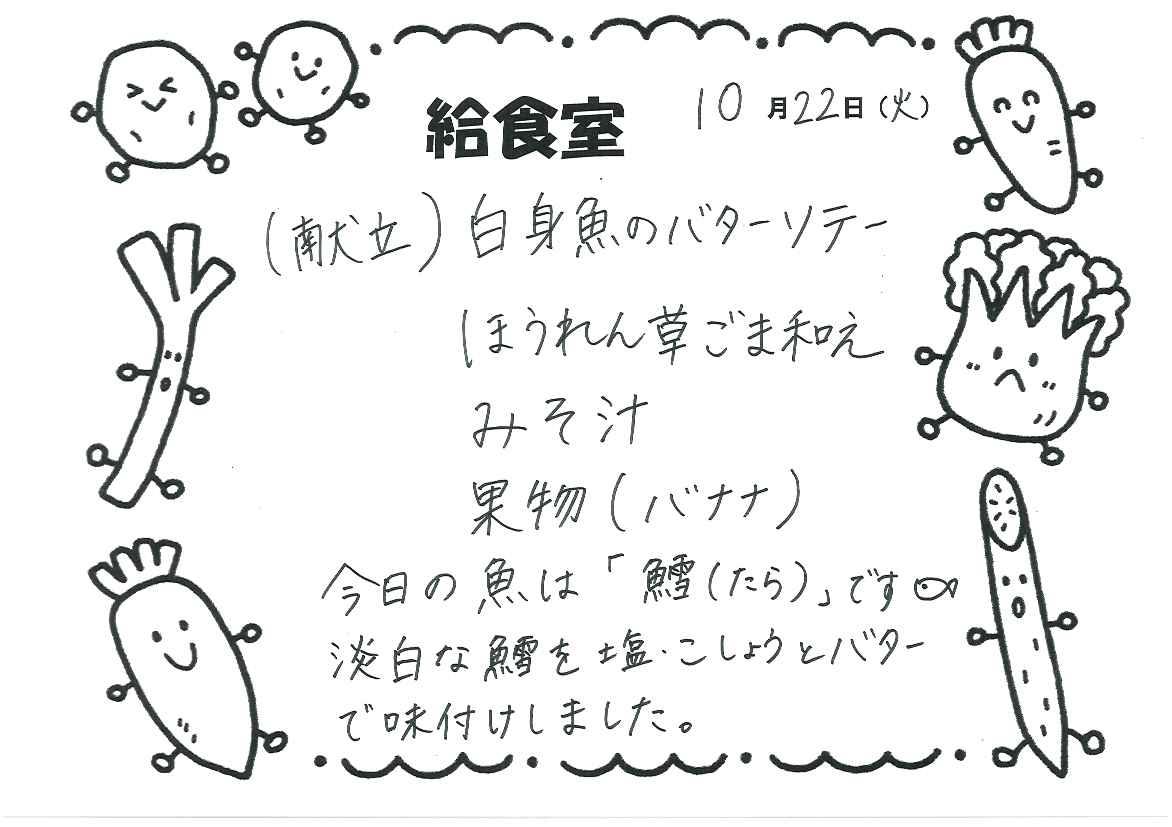 給食室 10月22日(火)
(献立)白身魚のバターソテー
ほうれん草ごま和え
みそ汁
果物(バナナ)
今日の魚は「鱈(たら)」です
淡白な鱈を塩・こしょうとバター
で味付けしました。